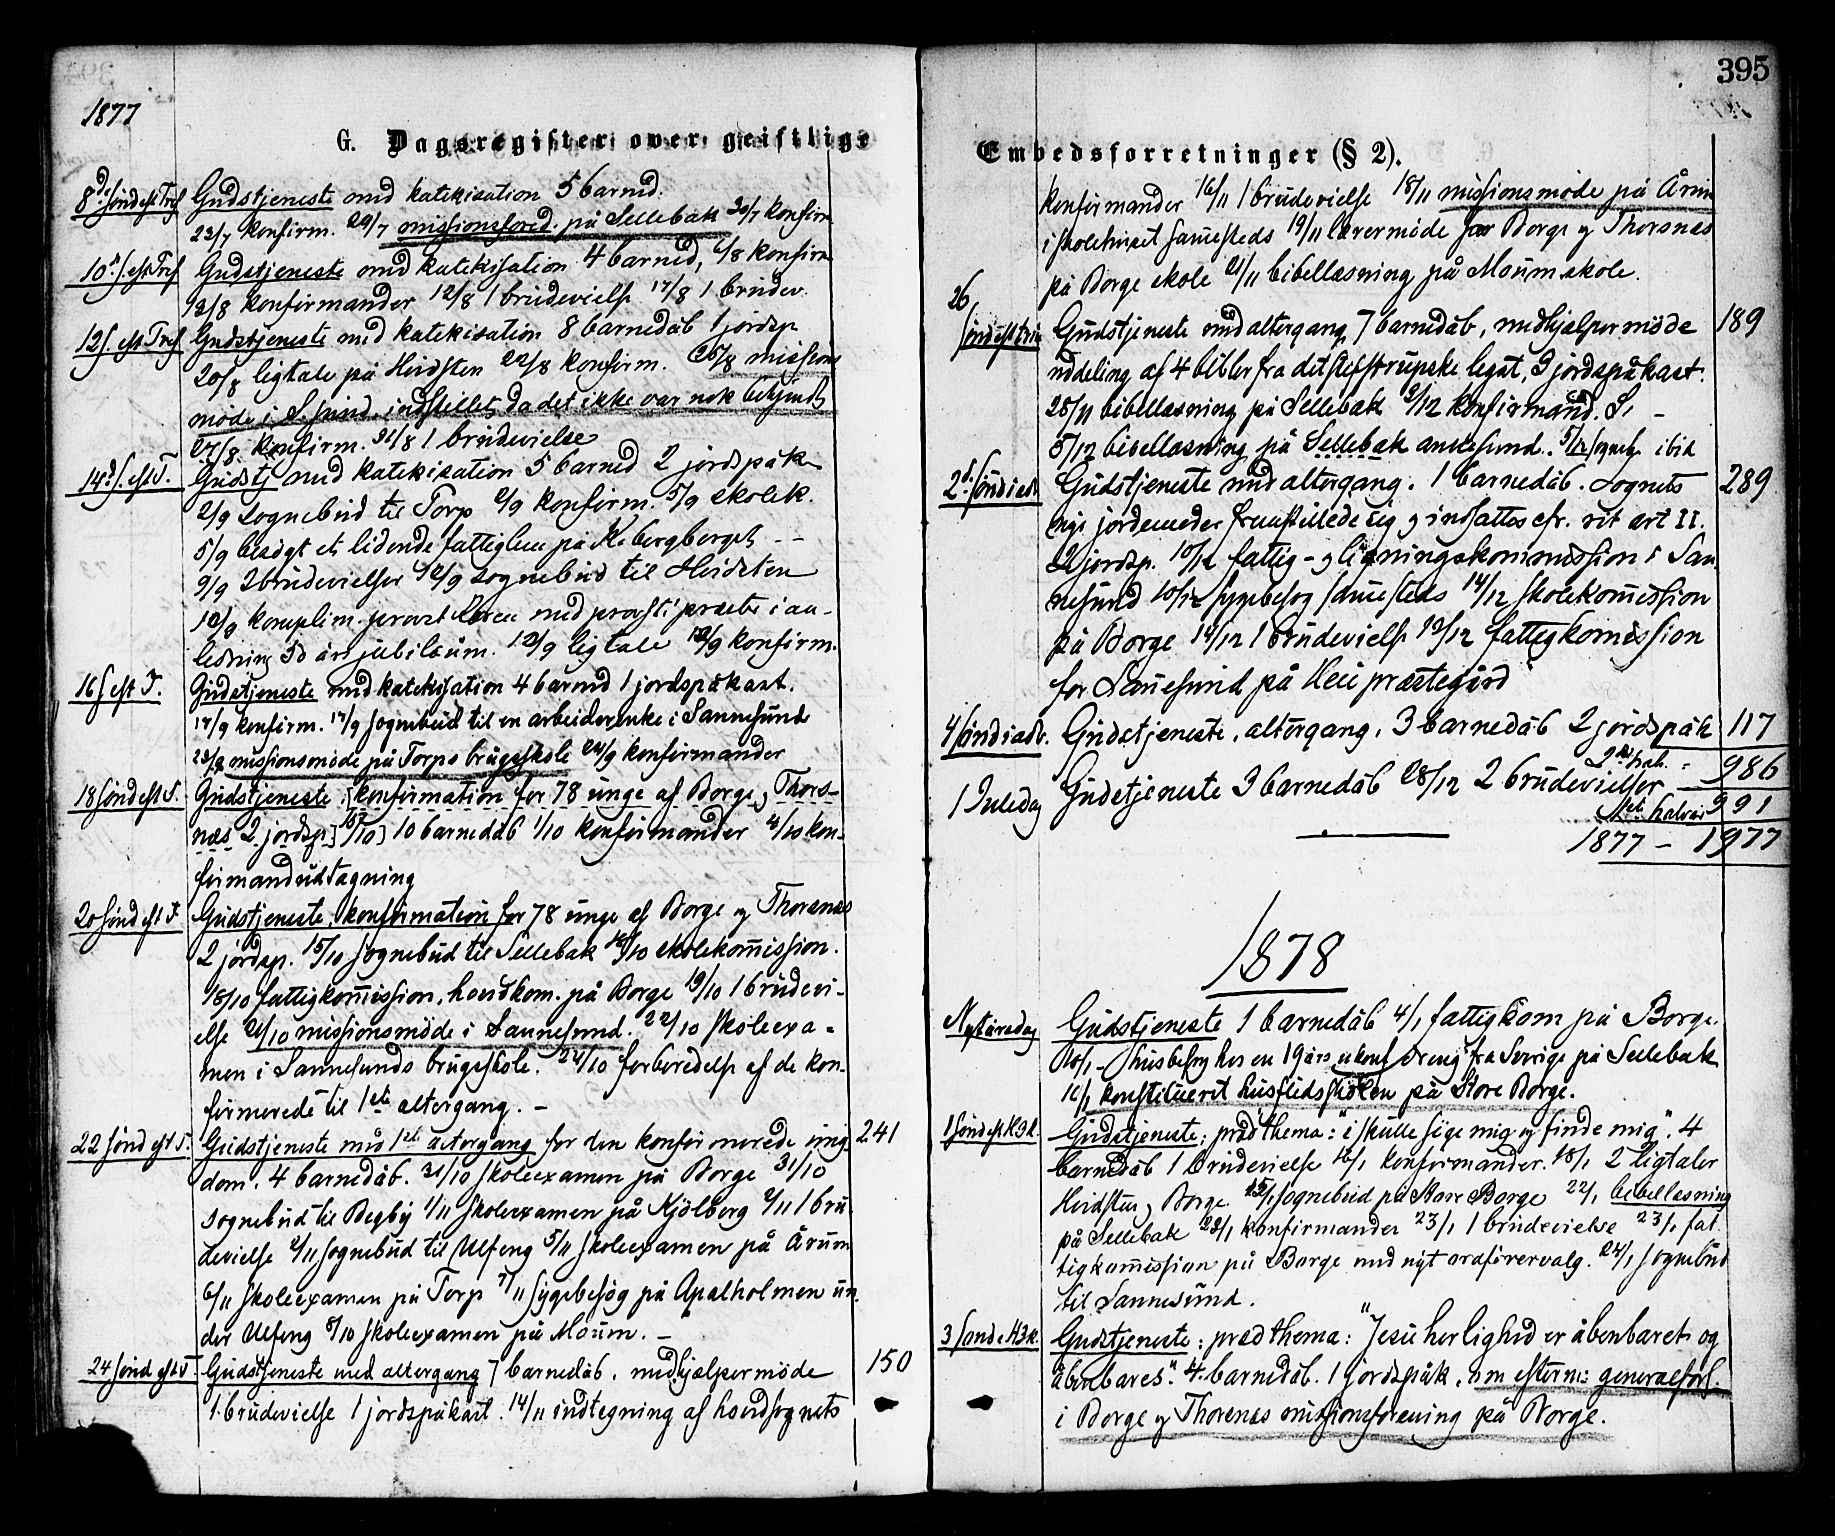 1877
G. Dagsregister over geistlige
8de sönd eft Tref Gudstjeneste med katekisation 5 barned.
23/7 konfirm. 29/7 missionsfored. på Sellebak 30/7 konfirm
10de s. eft Tref Gudstjeneste med katekisation 4 barned, 6/8 konfirm
13/8 konfirmander 12/8 1 brudevielse 17/8 1 brudev.
12 s. eft Tref. Gudstjeneste med katekisation 8 barnedåb 1 jordsp
20/8 ligtale på Heidsten 22/8 konfirm. 26/8 missions
möde i indstillet, da det ikke var nok bekjendt
27/8 konfirm. 31/8 1 brudevielse
14de s. eft T. Gudstj med katekisation 5 barned 2 jordspåk
2/9 sognebud til Torp konfirm. 5/9 skolek.
5/9 besögt et lidende fattiglem på
9/9 2 brudevielser 12/9 sognebud til Heidsten
komplim. provst med provsti præster i an-
ledning 50 års jubiläum. 12/9 ligtale konfirm.
16 s eft T. Gudstjeneste med katekisation 4 barned 1 jordspåkast.
17/9 konfirm. 17/9 sognebud til en arbeiderenke i Sannesund
23/9 missionsmöde på Torps brugsskole 24/9 konfirmander
18 sönd eft T. Gudstjeneste [konfirmation for 78 unge af Borge og Thors-
næs 2 jordsp] 10 barnedåb 1/10 konfirmander 4/10 kon-
firmandudtagning
20 sönd eft T. Gudstjeneste, konfirmation for 78 unge af Borge og Thorsnæs
2 jordsp. 15/10 sognebud til Sellebak skolekommission.
18/10 fattigkommission, hovedkom. på Borge 19/10 1 brudevi-
else 21/10 missionsmöde i Sannesund. 22/10 skoleexa-
men i Sannesunds brugsskole. 24/10 forberedelse af de kon-
firmerede til 1ste altergang. –
22 sönd eft T. Gudstjeneste med 1ste altergang for den konfirmerede ung- 241
dom. 4 barnedåb. 31/10 skoleexamen på Borge 31/10
sognebud til Begby 1/11 skoleexamen på Kjölberg 2/11 1 bru-
devielse 2/11 sognebud til Ulfeng 5/11 skoleexamen på Årum
6/11 skoleexamen på Torp 7/11 sygebesög på Apalholmen un-
der Ulfeng 8/10 skoleexamen på Moum. –
24 sönd eft T Gudstjeneste med altergang 7 barnedåb. medhjælpermöde 150
1 brudevielse 1 jordspåkast. 14/11 indtegning af hovedsognets
395
Embedsforretninger (§ 2).
konfirmander 16/11 1 brudevielse 18/11 missionsmöde på Årum
i skolehuset sammesteds 19/11 lærermöde for Borge og Thorsnæs
på Borge skole 21/11 bibellæsning på Moum skole.
26 sönd eft trin Gudstjeneste med altergang, 7 barnedåb, medhjælpermöde 189
uddeling af 4 bibler fra det legat, 3 jordspåkast.
28/11 bibellæsning på Sellebak 2/12 konfirmand. –
5/12 bibellæsning på Sellebak 5/12 ibid
2d. sönd i adv Gudstjeneste med altergang. 1 barnedåb. Sognets 289
nye jordemoder fremstillede sig og indsattes efr. rit art II.
2 jordsp. 10/12 fattig- og ligningskommission i San-
nesund 10/12 sygebesög sammesteds 14/12 skolekommission
på Borge 14/12 1 brudevielse 19/12 fattigkommission
for Sannesund på Heie præstegård
4 sönd i adv. Gudstjeneste, altergang, 3 barnedåb 2 jordspåk 117
2det hal. 986
1 Juledag Gudstjeneste 3 barnedåb 28/12 2 brudevielser
1ste halvår 991
1877 – 1977
1878
Nytårsdag Gudstjeneste 1 barnedåb 4/1 fattigkom på Borge.
10/1 – husbesög hos en 19 års dreng fra Sverige på Sellebak
konstitueret husflidsskolen på Store Borge.
1 sönd eft H3K. Gudstjeneste; præd thema: "i skulle söge mig og finde mig". 4
barnedåb 1 brudevielse 16/1 konfirmander. 18/1 2 ligtaler
Heidsten og Borge. sognebud på Store Borge 22/1 bibellæsning
på Sellebak 23/1 konfirmander 23/1 1 brudevielse 23/1 fat-
tigkommission på Borge med nyt ordförervalg. 24/1 sognebud
til Sannesund.
3 sönd e H3K. Gudstjeneste: præd thema: "Jesu herlighed er åbenbaret og
åbenbares". 4 barnedåb. 1 jordspåk, om efterm: generalfors.
i Borge og Thorsnæs missionsforening på Borge.